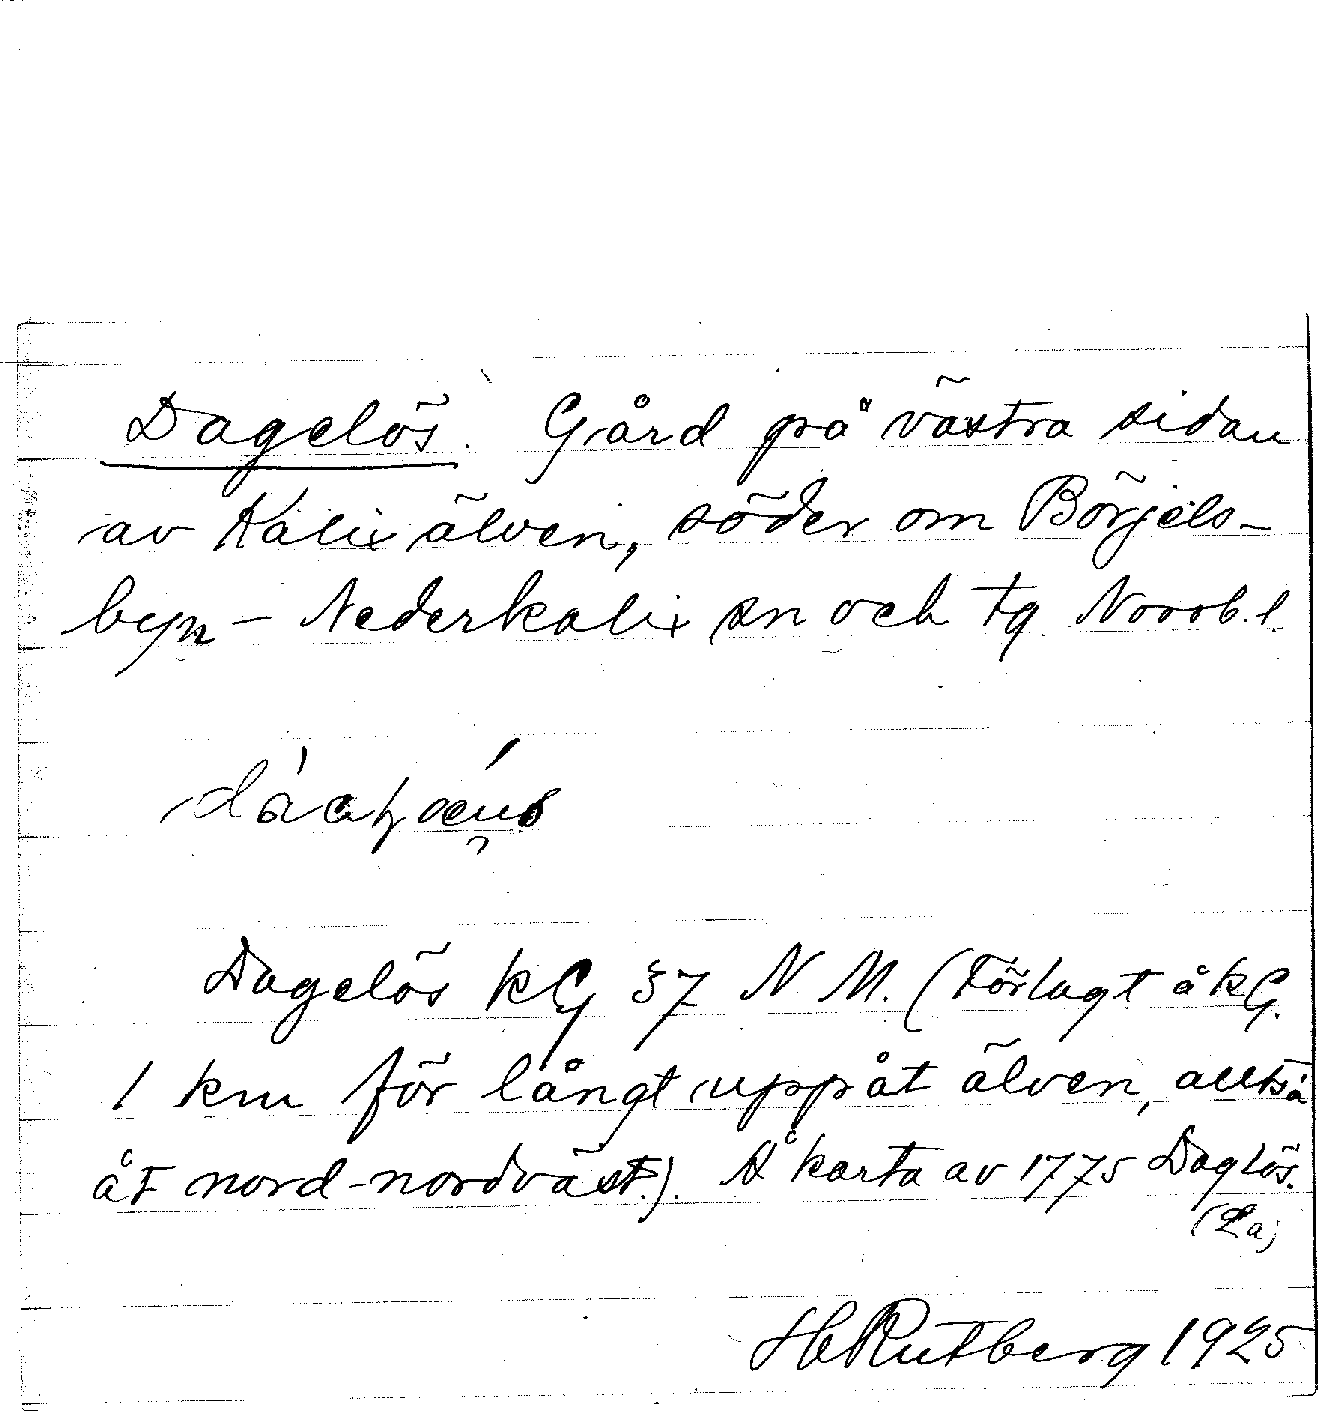 Dagelös. Gård på västra sidan
av Kalix älven, söder om Börjels-
byn - Nederkalix sn och tg Norrb. l.
Dagelös kG 37 N M. (Förlagt å kG.
1 km för långt uppåt älven, alltså
åt nord-nordväst.). Å karta av 1775 Daglös.
(La)
H Rutberg 1925